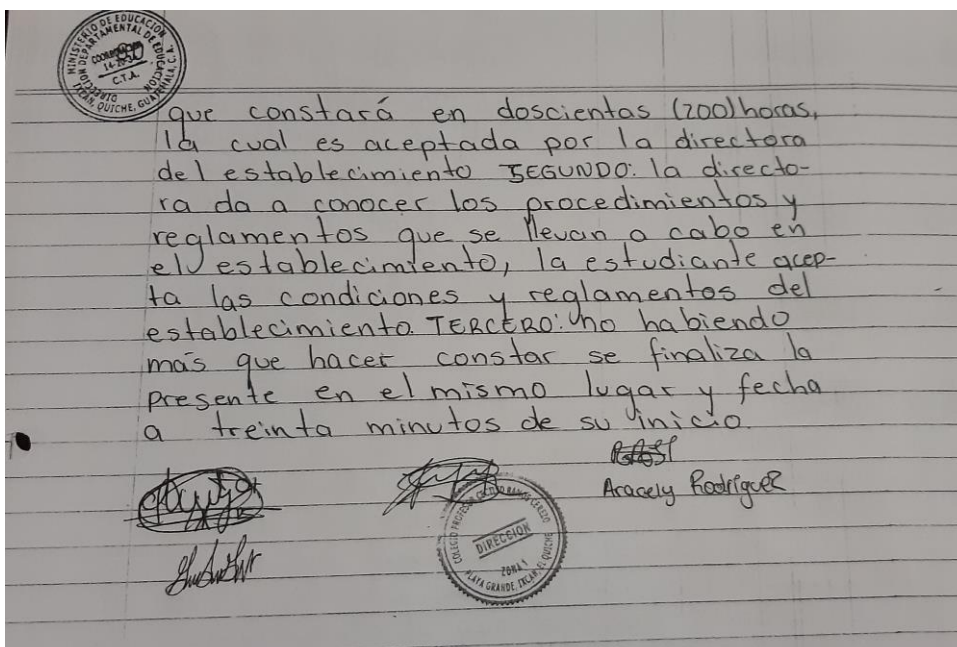 MINISTERIO DE EDUCACION
DEPARTAMENTAL DE EDUCACION
C.T.A.
IXCAN, QUICHE, GUATEMALA, C.A.
que constará en doscientas (200) horas,
la cual es aceptada por la directora
del establecimiento SEGUNDO: la directo-
ra da a conocer los procedimientos y
reglamentos que se llevan a cabo en
el establecimiento, la estudiante acep-
ta las condiciones y reglamentos del
establecimiento. TERCERO: no habiendo
más que hacer constar se finaliza la
presente en el mismo lugar y fecha
a treinta minutos de su inicio.
Aracely Rodríguez
COLEGIO PROFESOR CECILIO RAMOS CEREZO
DIRECCION
ZONA 1
PLAYA GRANDE, IXCAN, EL QUICHE